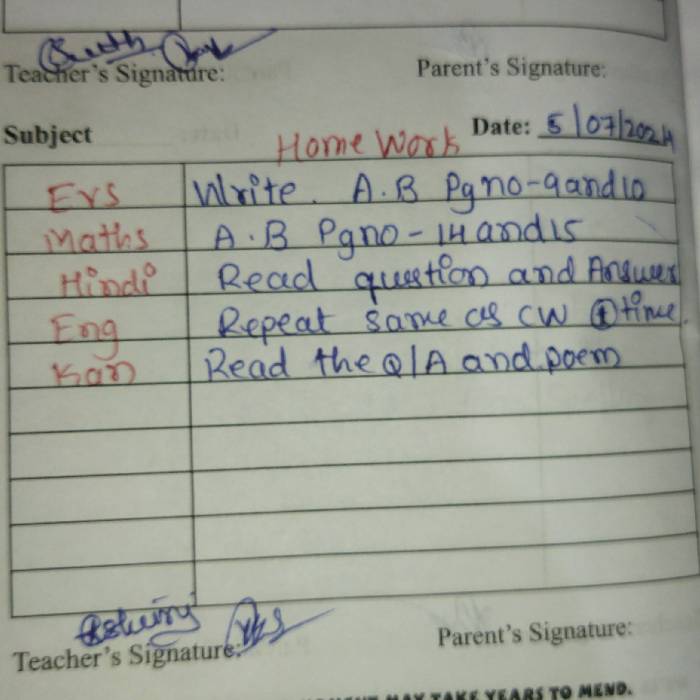 Teacher's Signature: Parent's Signature:
Subject Date: 5/07/2024
Home Work
EVS Write. A.B Pgno-9and10
Maths A.B Pgno-14and15
Hindi Read question and Answer
Eng Repeat same as CW ① time.
Kan Read the Q/A and poem
Teacher's Signature: Parent's Signature:
MAY TAKE YEARS TO MEND.